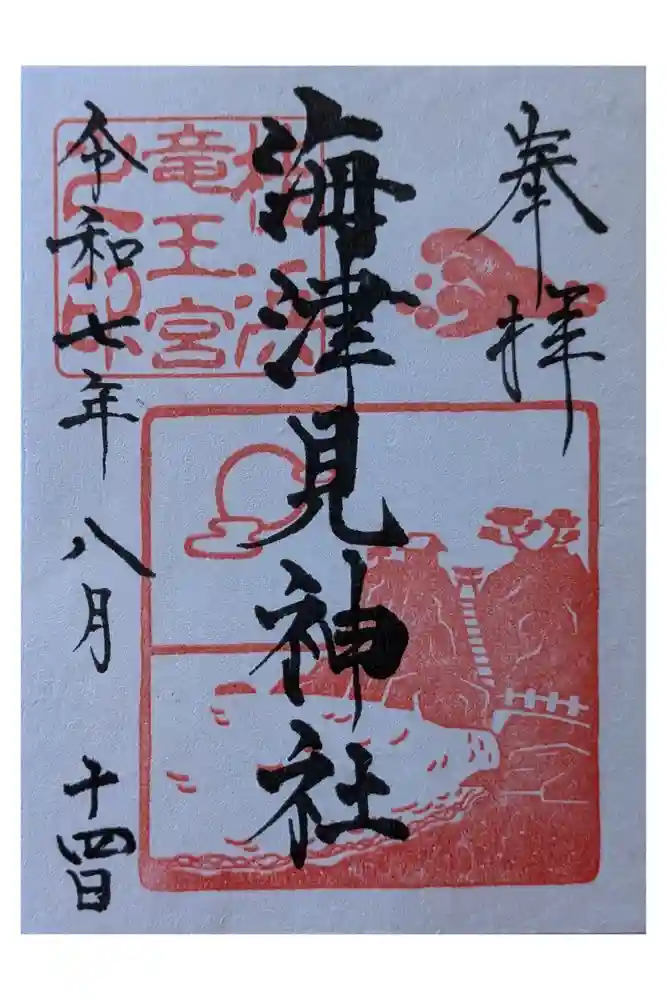 奉拝
海津見神社
竜王宮
令和七年八月十四日